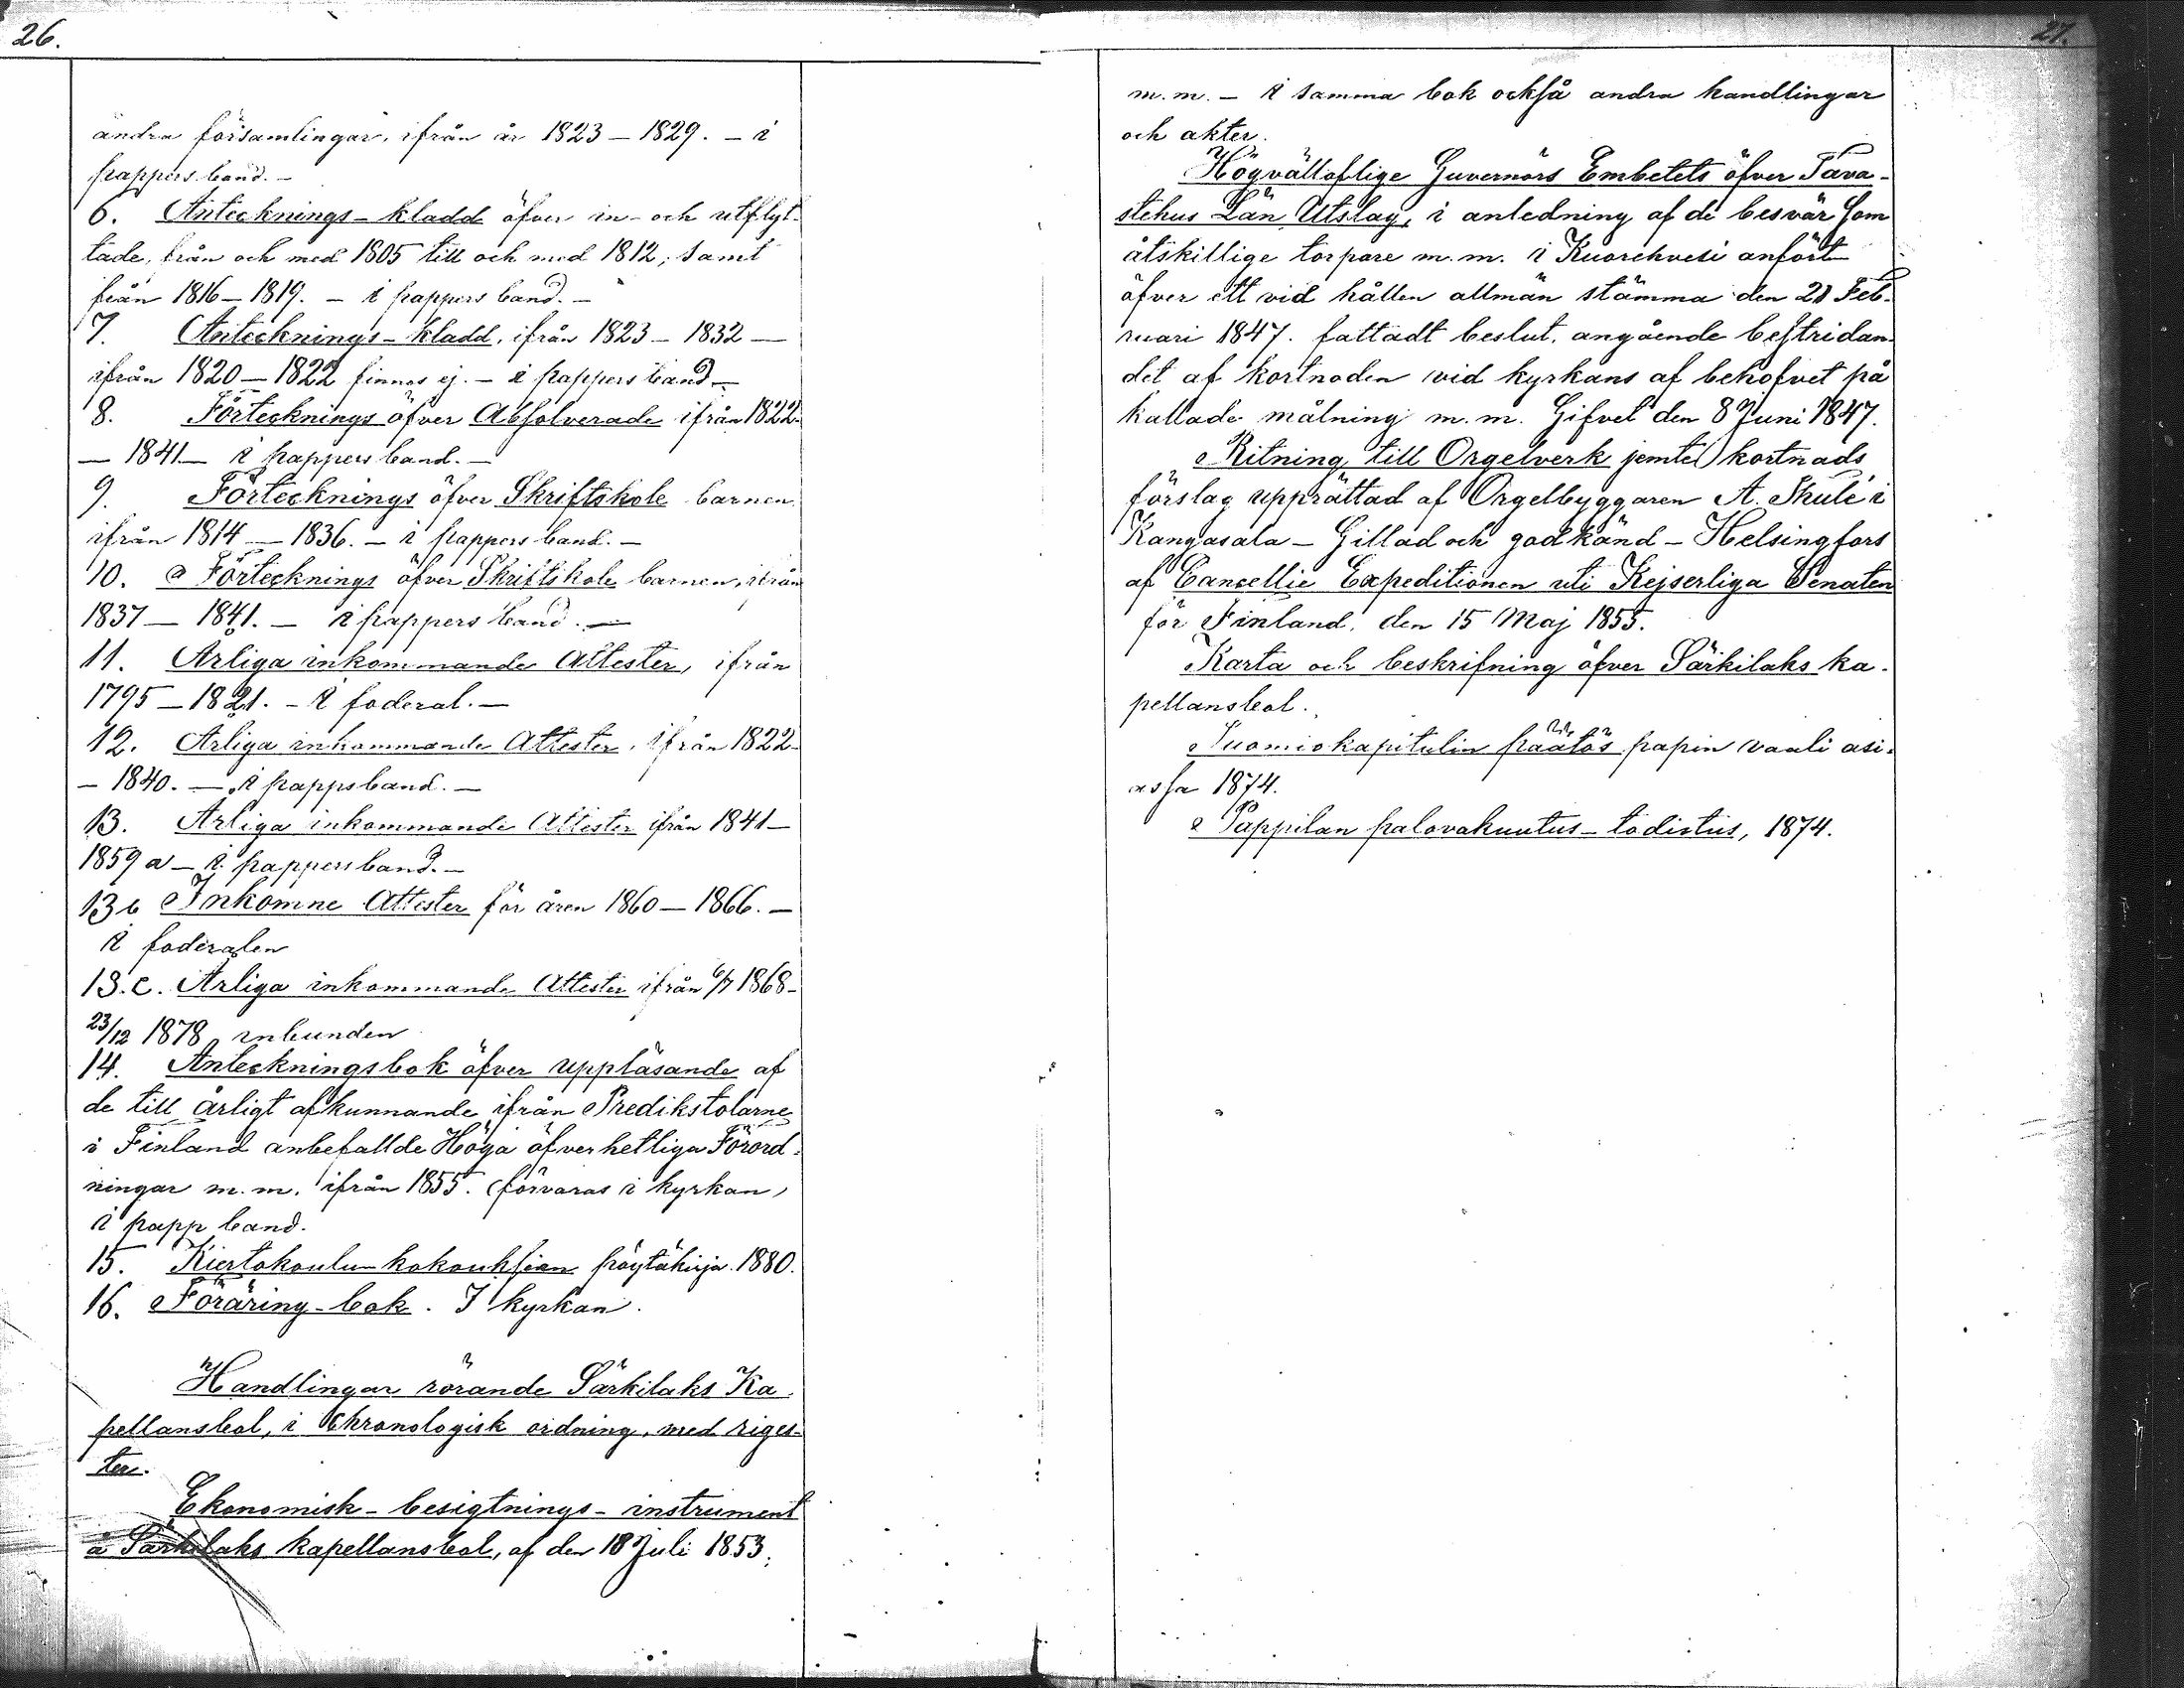 26.
andra församlingar, ifrån år 1823 — 1829. — i
pappers band. —
6. Antecknings - kladd öfver in- och utflyt-
tade, från och med 1805 till och med 1812, samt
från 1816 — 1819. — i pappers band. —
7. Antecknings - kladd, ifrån 1823 — 1832 —
ifrån 1820 — 1822 finnes ej. — i pappers band —
8. Förtecknings öfver Absolverade ifrån 1822-
— 1841 — i pappers band. —
9. Förtecknings öfver Skriftskole barnen
ifrån 1814 — 1836. — i pappers band. —
10. Förtecknings öfver Skriftskole barnen, ifrån
1837 — 1841. — i pappers band. —
11. Årliga inkommande Attester, ifrån
1795 — 1821. — i foderal. —
12. Årliga inkommande Attester, ifrån 1822-
— 1840. — i pappsband. —
13. Årliga inkommande Attester ifrån 1841 —
1859 a — i pappersband. —
13 b Inkomne Attester för åren 1860 — 1866. —
i foderalen
13. c. Årliga inkommande Attester ifrån 6/7 1868 -
23/12 1878 inbunden
14. Anteckningsbok öfver uppläsande af
de till årligt afkunnande ifrån Predikstolarne
i Finland anbefallde Höga öfverhetliga Förord-
ningar m. m. ifrån 1855. (förvaras i kyrkan)
i papp band.
15. Kiertokoulun kokouksien pöytäkirja. 1880.
16. Föräring - bok. I kyrkan.
Handlingar rörande Särkilaks Ka-
pellansbol, i Chronologisk ordning, med riges-
ter.
Ekonomisk - besigtnings - instrument
å Särkilaks kapellansbol, af den 18 Juli 1853,
27.
m. m. — i samma bok också andra handlingar
och akter.
Högvälloflige Guvernörs Embetets öfver Tava-
stehus Län Utslag, i anledning af de besvär som
åtskillige torpare m. m. i Kuorehvesi anfört
öfver ett vid hållen allmän stämma den 21 Feb-
ruari 1847. fattadt beslut, angående bestridan-
det af kostnaden vid kyrkans af behofvet på
kallade målning m. m. Gifvet den 8 Juni 1847.
Ritning till Orgelverk jemte kostnads
förslag upprättad af Orgelbyggaren A. Thulé i
Kangasala — Gillad och godkänd — Helsingfors
af Cancellie Expeditionen uti Kejserliga Senaten
för Finland, den 15 Maj 1855.
Karta och beskrifning öfver Särkilaks ka-
pellansbol.
Tuomiokapitulin päätös papin vaali asi-
assa 1874.
Pappilan palovakuutus - todistus, 1874.